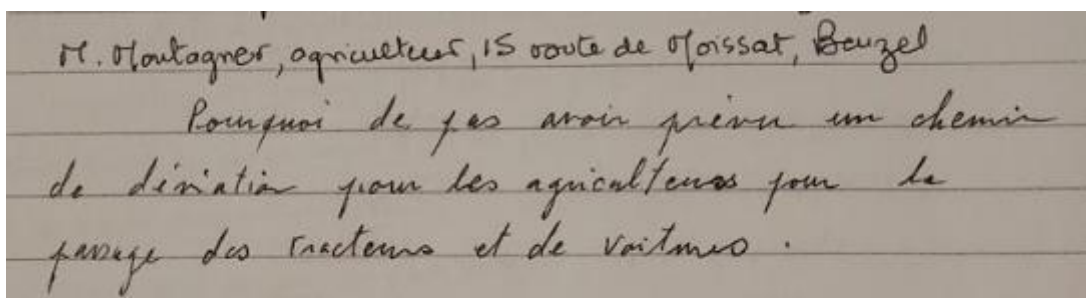 M. Montagner, agriculteur, 15 route de Moissat, Beuzel
Pourquoi de pas avoir prévu un chemin
de déviation pour les agriculteurs pour le
passage des tracteurs et de voitures.